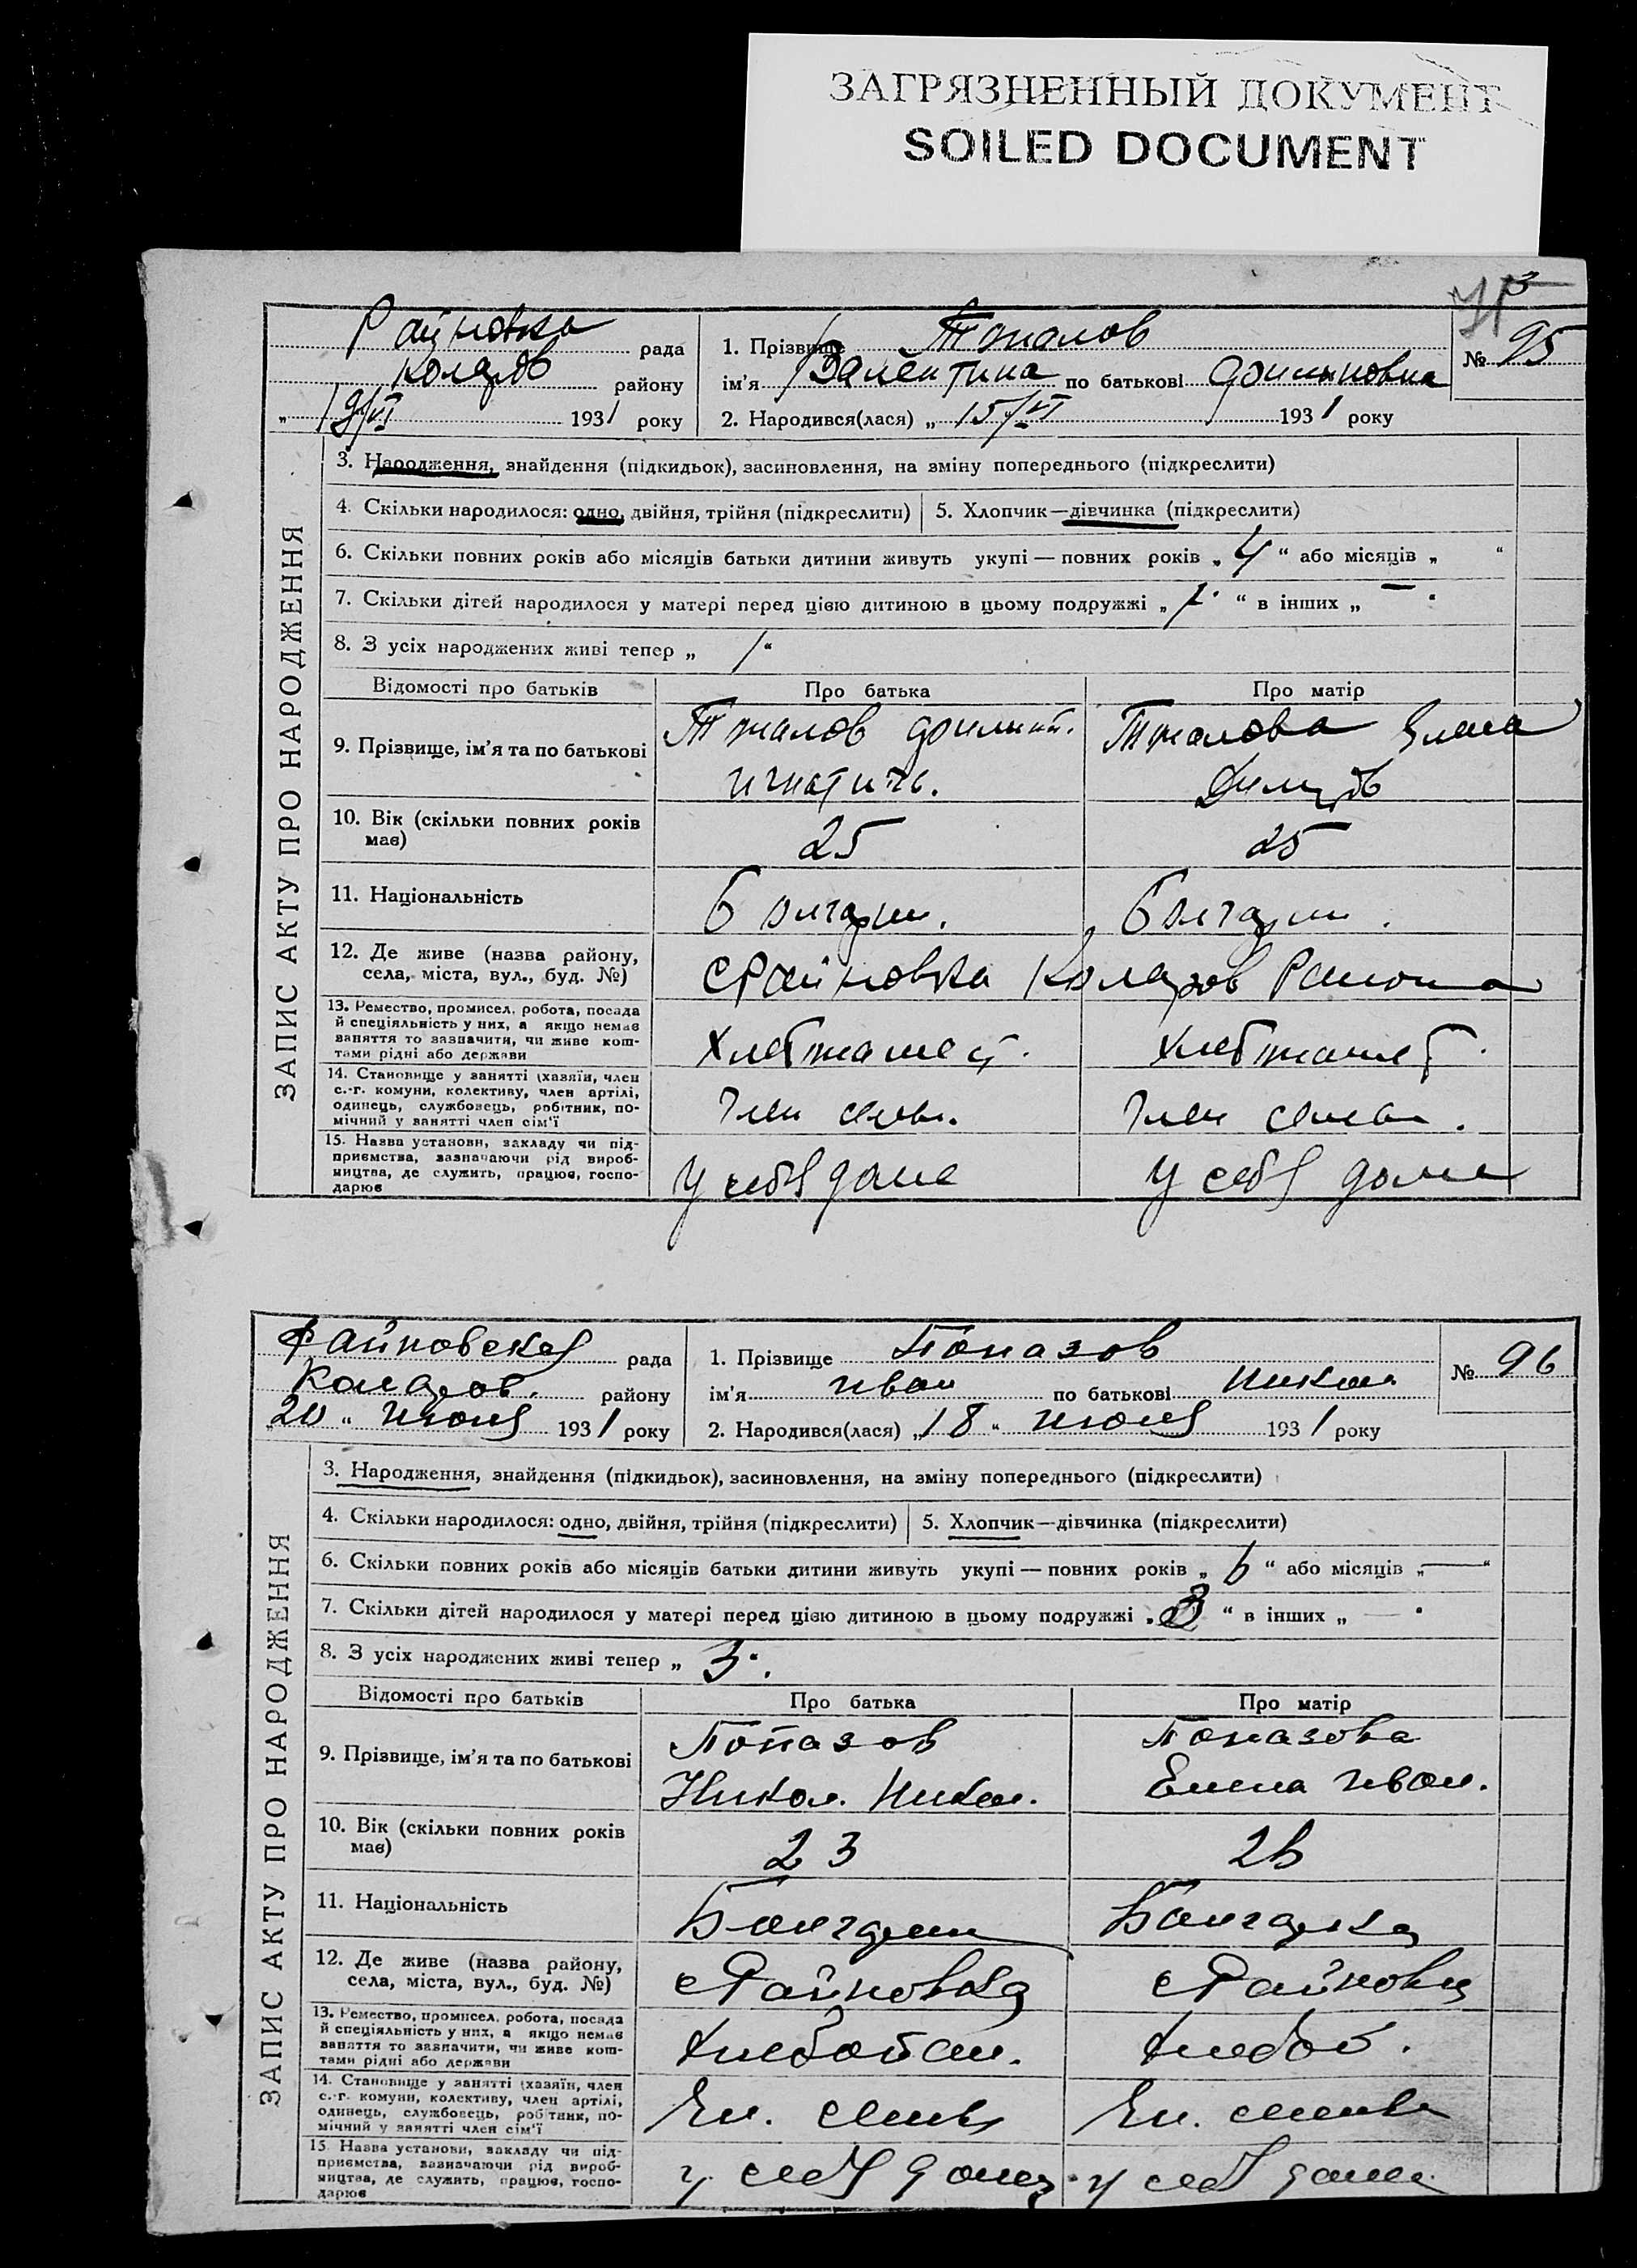 ЗАГРЯЗНЕННЫЙ ДОКУМЕНТ
SOILED DOCUMENT
Райновка рада
Коларов району
19/VI 1931 року
1. Прізвище Топалов
ім'я Валентина по батькові
2. Народився(лася) „15/VI 1931 року
№ 95
ЗАПИС АКТУ ПРО НАРОДЖЕННЯ
3. Народження, знайдення (підкидьок), засиновлення, на зміну попереднього (підкреслити)
4. Скільки народилося: одно, двійня, трійня (підкреслити) 5. Хлопчик—дівчинка (підкреслити)
6. Скільки повних років або місяців батьки дитини живуть укупі — повних років „ 4 “ або місяців „ “
7. Скільки дітей народилося у матері перед цією дитиною в цьому подружжі „ “ в інших „ —
8. З усіх народжених живі тепер „ 1 “
Відомості про батьків Про батька Про матір
9. Прізвище, ім'я та по батькові
Топалов Топалова
10. Вік (скільки повних років має) 25 25
11. Національність Болгарин. Болгарин.
12. Де живе (назва району, села, міста, вул., буд. №) с Райновка Коларов Района
13. Ремество, промисел, робота, посада й спеціяльність у них, а якщо немає заняття то зазначити, чи живе коштами рідні або держави Хлебопашец. Хлебопашец.
14. Становище у занятті (хазяїн, член с.-г. комуни, колективу, член артілі, одинець, службовець, робітник, помічний у занятті член сім'ї Член семьи. Член семьи.
15. Назва установи, закладу чи підприємства, зазначаючи рід виробництва, де служить, працює, господарює У себя доме У себя доме
Райновская рада
Коларов. району
„20“ Июня 1931 року
1. Прізвище Попазов
ім'я Иван по батькові Никол.
2. Народився(лася) „18“ Июня 1931 року
№ 96
ЗАПИС АКТУ ПРО НАРОДЖЕННЯ
3. Народження, знайдення (підкидьок), засиновлення, на зміну попереднього (підкреслити)
4. Скільки народилося: одно, двійня, трійня (підкреслити) 5. Хлопчик—дівчинка (підкреслити)
6. Скільки повних років або місяців батьки дитини живуть укупі — повних років „ 6 “ або місяців „ — “
7. Скільки дітей народилося у матері перед цією дитиною в цьому подружжі „ 3 “ в інших „ —
8. З усіх народжених живі тепер „ 3 “.
Відомості про батьків Про батька Про матір
9. Прізвище, ім'я та по батькові
Попазов Попазова
Никол. Никол. Елена Иван.
10. Вік (скільки повних років має) 23 26
11. Національність Болгарин Болгарка
12. Де живе (назва району, села, міста, вул., буд. №) с Райновка с Райновка
13. Ремество, промисел, робота, посада й спеціяльність у них, а якщо немає заняття то зазначити, чи живе коштами рідні або держави Хлебопаш. Хлебоп.
14. Становище у занятті (хазяїн, член с.-г. комуни, колективу, член артілі, одинець, службовець, робітник, помічний у занятті член сім'ї Чл. семьи Чл. семьи
15. Назва установи, закладу чи підприємства, зазначаючи рід виробництва, де служить, працює, господарює у себя дома. у себя дома.